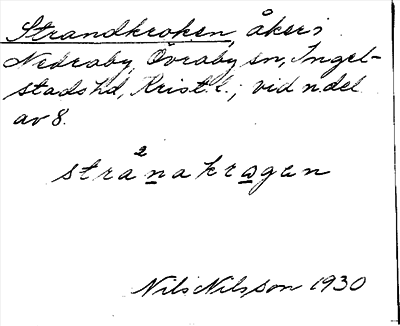 Strandkroken, åker i
Nedraby, Övraby sn, Ingel-
stads hd, Krist. l.; vid n del
av 8.
2
strånakragen
Nils Nilsson 1930